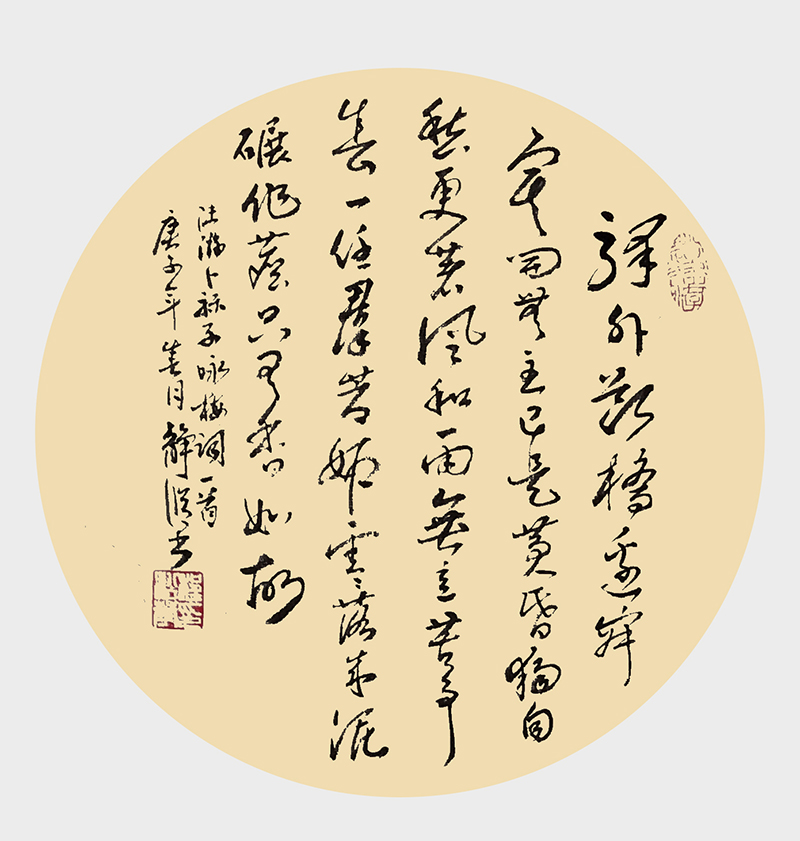 驛外断橋邊寂
寞開無主已是黄昏獨自
愁更著風和雨無意苦争
春一任羣芳妒零落成泥
碾作塵只有香如故
陆游卜算子咏梅词一首
庚子年春月靜书